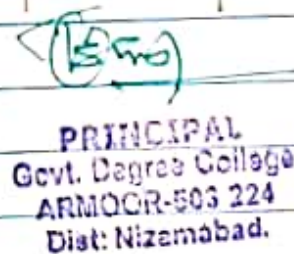 PRINCIPAL
Govt. Degree College
ARMOOR-503 224
Dist: Nizamabad.